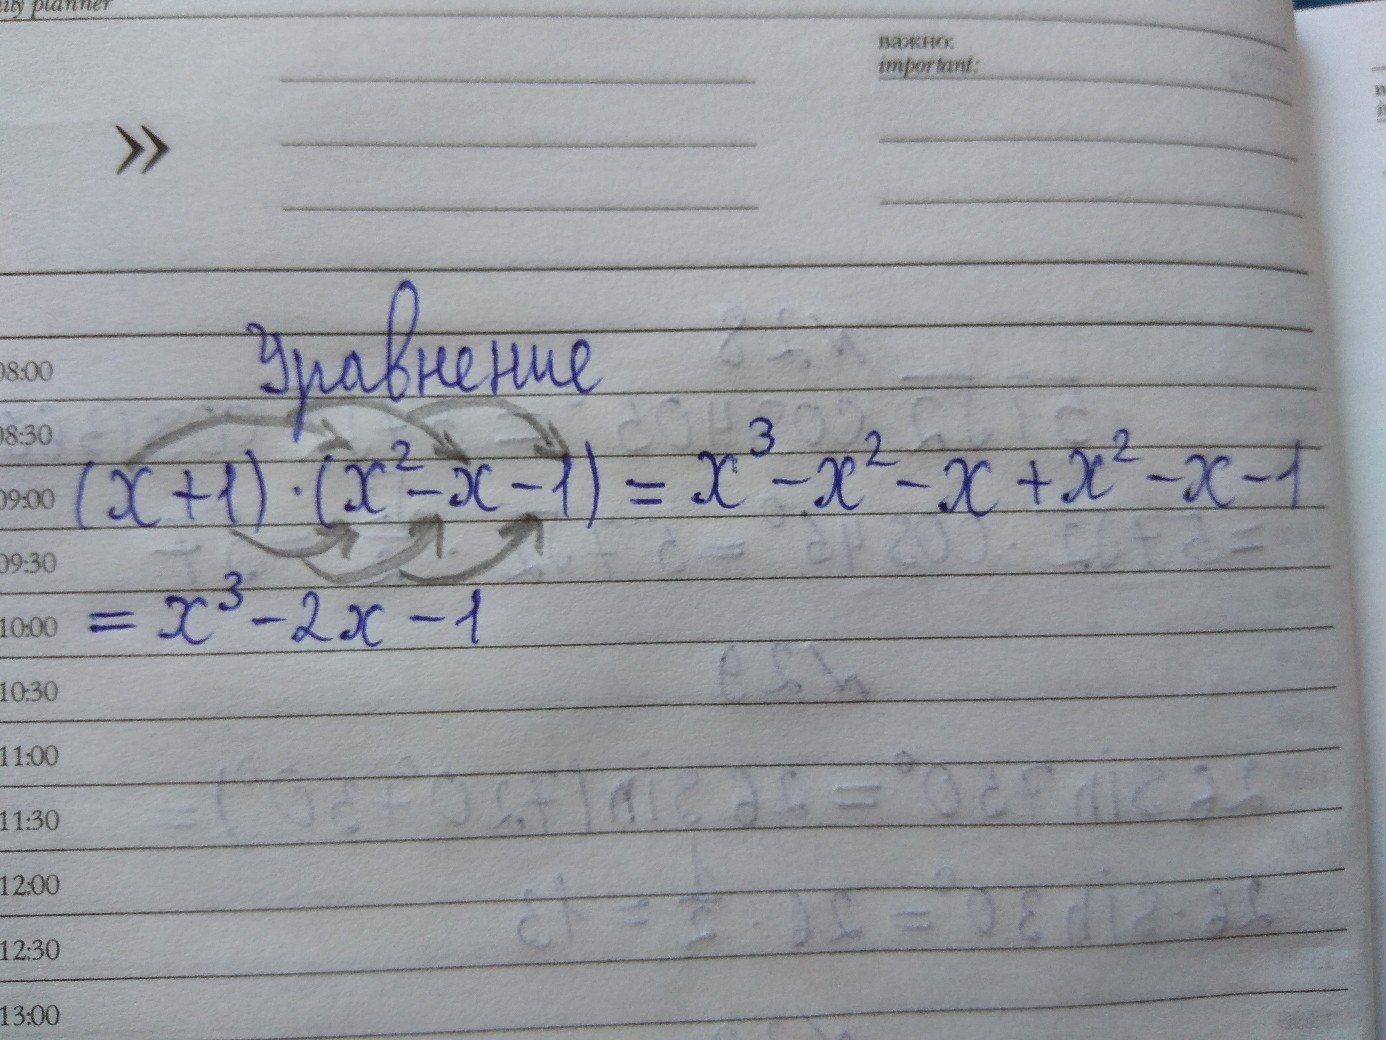 planner
важно:
important:
»
Уравнение
(x+1)·(x²-x-1)=x³-x²-x+x²-x-1
=x³-2x-1
08:00
08:30
09:00
09:30
10:00
10:30
11:00
11:30
12:00
12:30
13:00